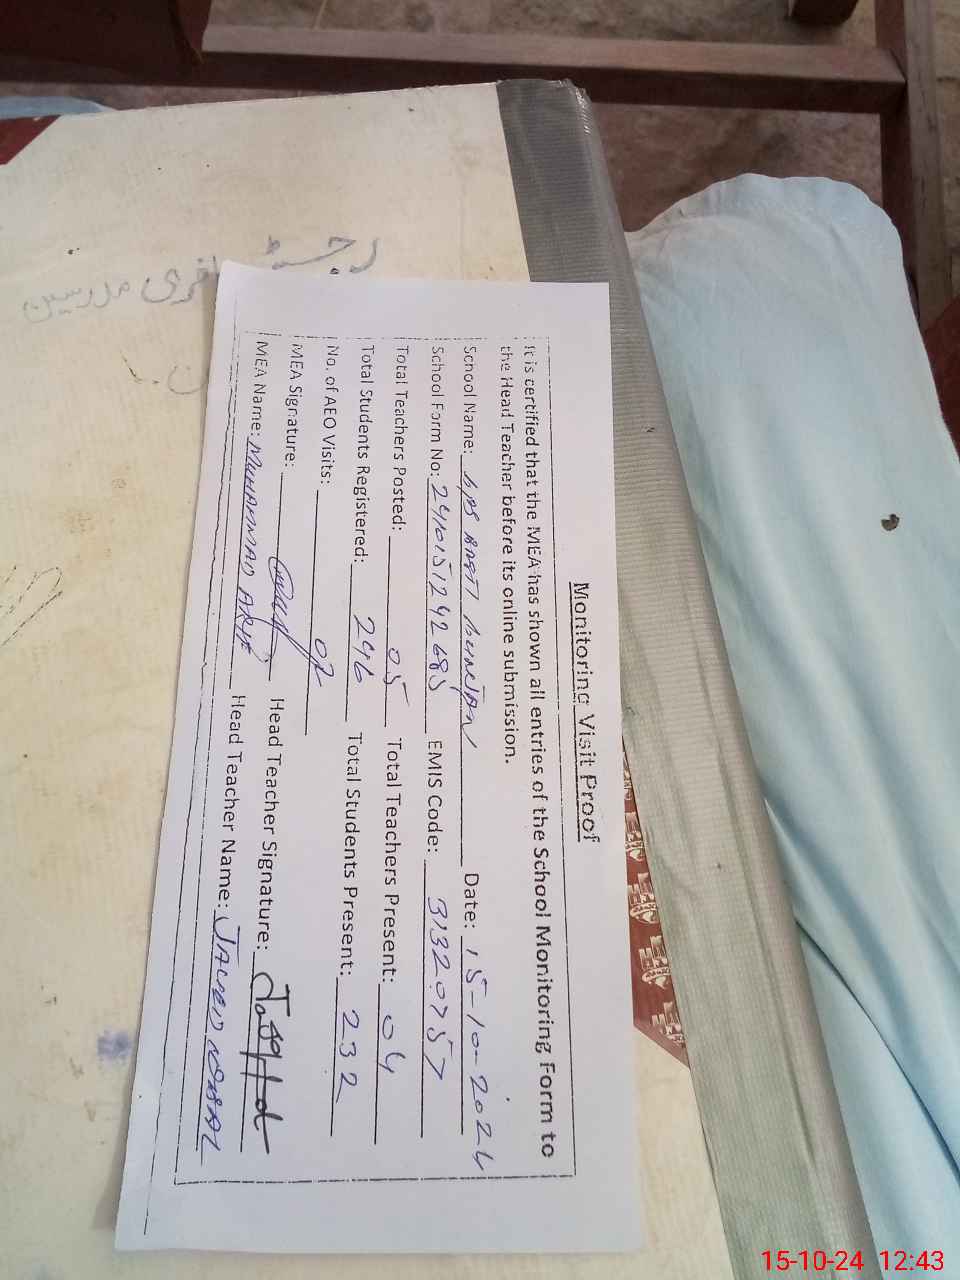 Monitoring Visit Proof
It is certified that the MEA has shown all entries of the School Monitoring Form to
the Head Teacher before its online submission.
School Name: GPS BASTI Date: 15-10-2024
School Form No: 2410151242685 EMIS Code: 31320757
Total Teachers Posted: 05 Total Teachers Present: 04
Total Students Registered: 246 Total Students Present: 232
No. of AEO Visits: 02
MEA Signature: Head Teacher Signature:
MEA Name: MUHAMMAD ARIF Head Teacher Name: JAVED IQBAL
مدرسین
15-10-24 12:43